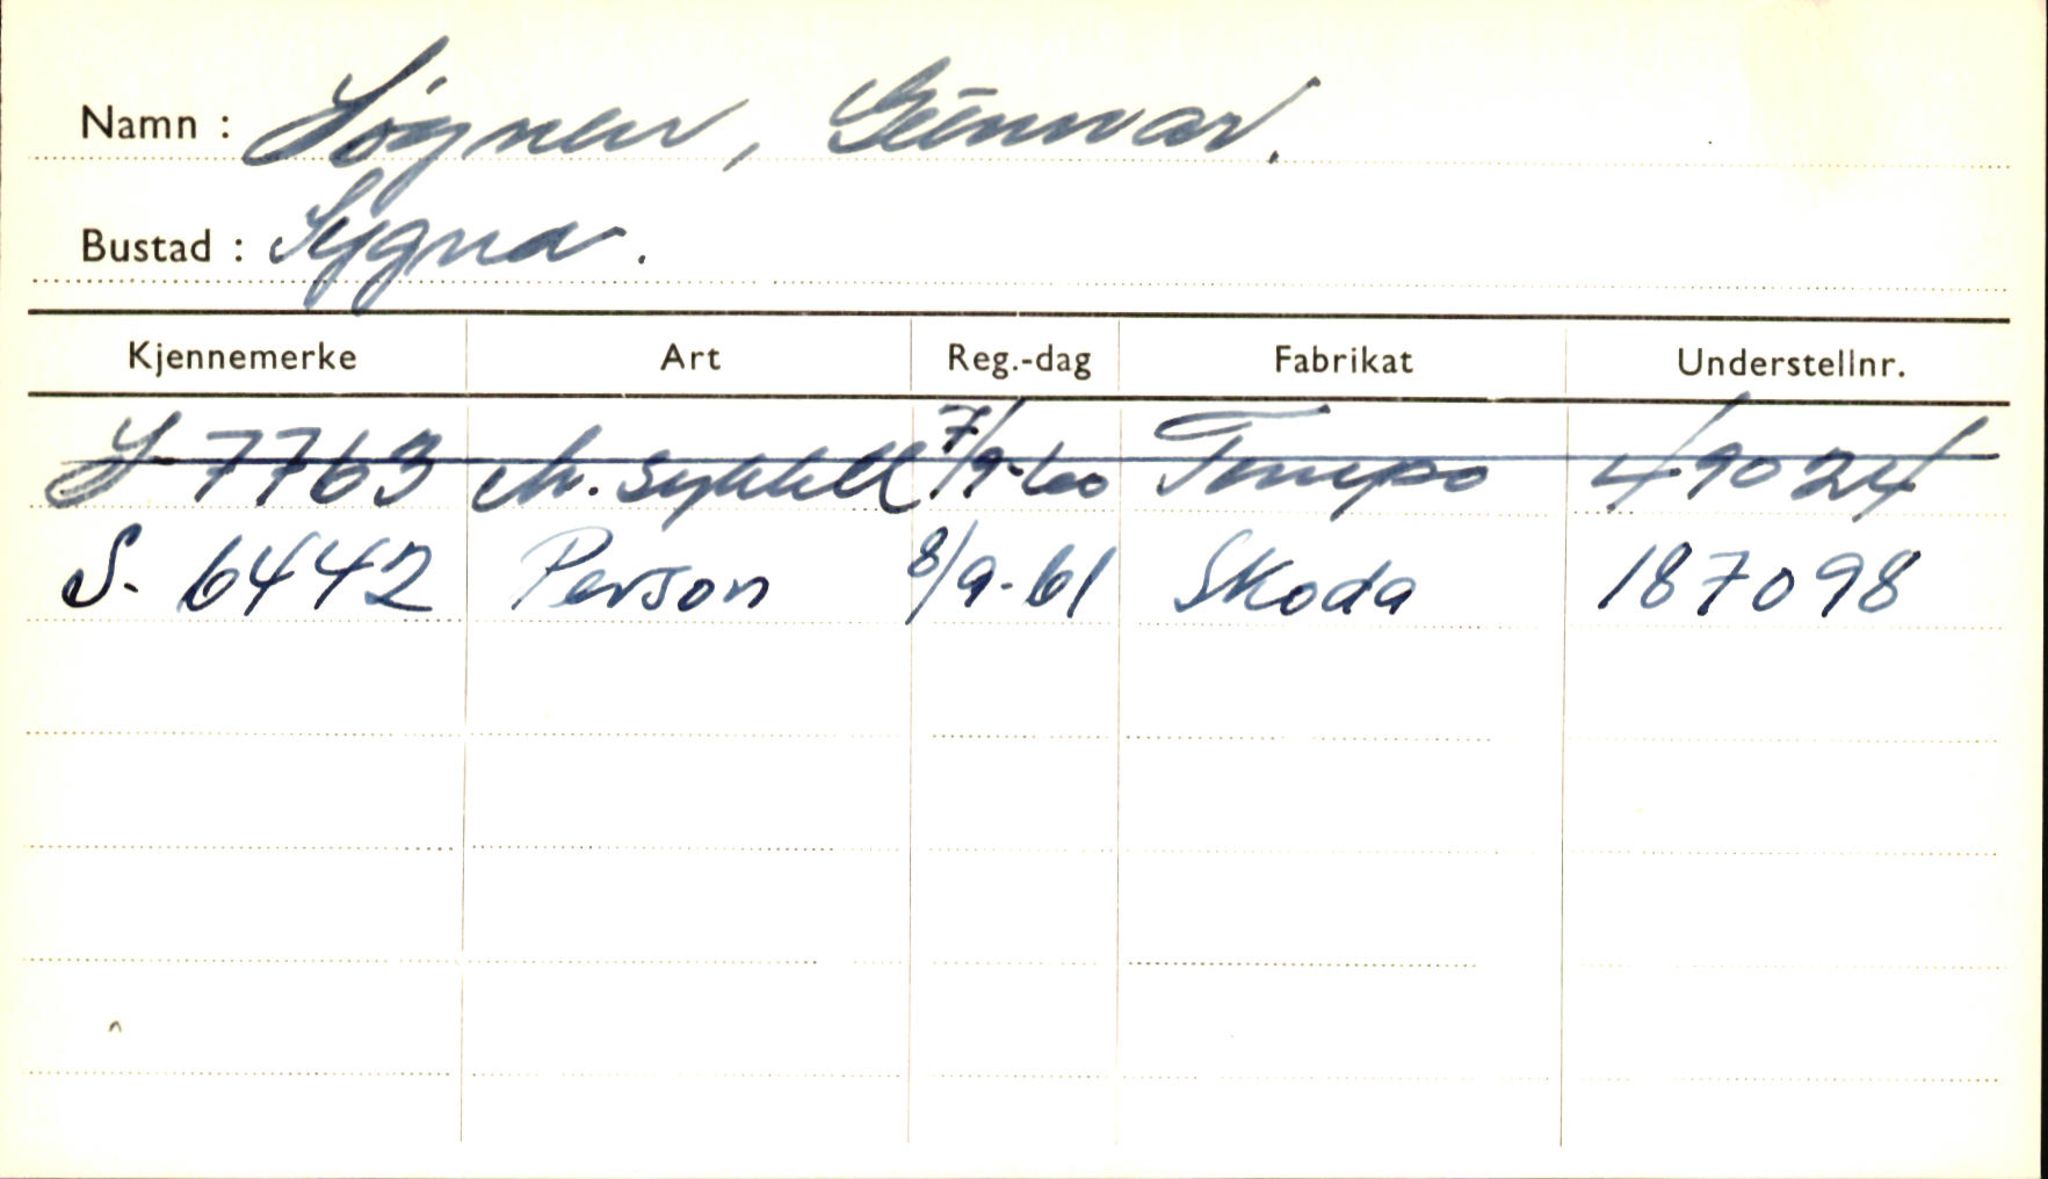 Namn : Søgnen, Gunnvar.
Bustad : Sygna.
Kjennemerke Art Reg.-dag Fabrikat Understellnr.
S 7763 M. sykkel 7/9-60 Tempo 49024
S. 6442 Person 8/9-61 Skoda 187098